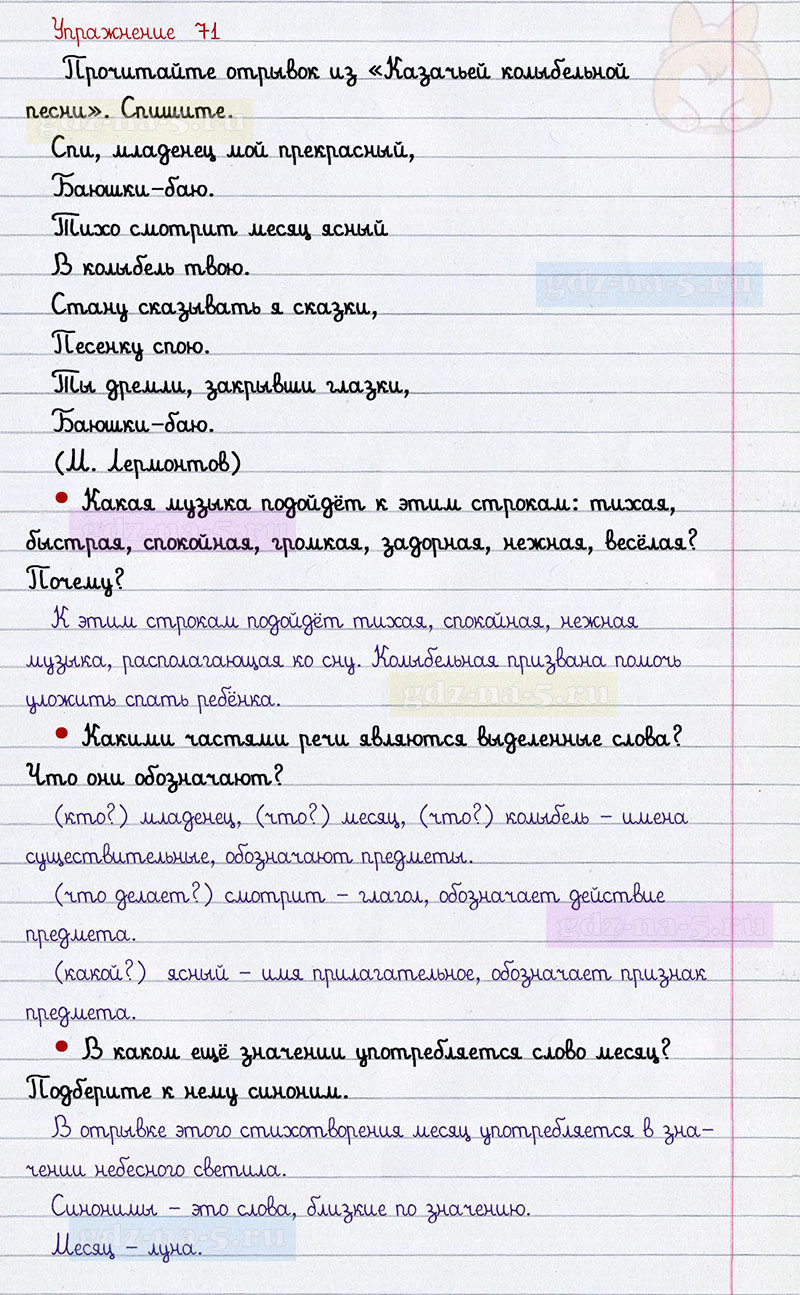 Упражнение 71
Прочитайте отрывок из «Казачьей колыбельной
песни». Спишите.
gdz-na-5.ru
Спи, младенец мой прекрасный,
Баюшки-баю.
Тихо смотрит месяц ясный
В колыбель твою.
gdz-na-5.ru
Стану сказывать я сказки,
Песенку спою.
Ты дремли, закрывши глазки,
Баюшки-баю.
(М. Лермонтов)
• Какая музыка подойдёт к этим строкам: тихая,
gdz-na-5.ru
быстрая, спокойная, громкая, задорная, нежная, весёлая?
Почему?
К этим строкам подойдёт тихая, спокойная, нежная
музыка, располагающая ко сну. Колыбельная призвана помочь
уложить спать ребёнка.
gdz-na-5.ru
• Какими частями речи являются выделенные слова?
Что они обозначают?
(кто?) младенец, (что?) месяц, (что?) колыбель – имена
существительные, обозначают предметы.
(что делает?) смотрит – глагол, обозначает действие
предмета.
gdz-na-5.ru
(какой?) ясный – имя прилагательное, обозначает признак
предмета.
• В каком ещё значении употребляется слово месяц?
Подберите к нему синоним.
В отрывке этого стихотворения месяц употребляется в зна-
чении небесного светила.
Синонимы – это слова, близкие по значению.
gdz-na-5.ru
Месяц – луна.